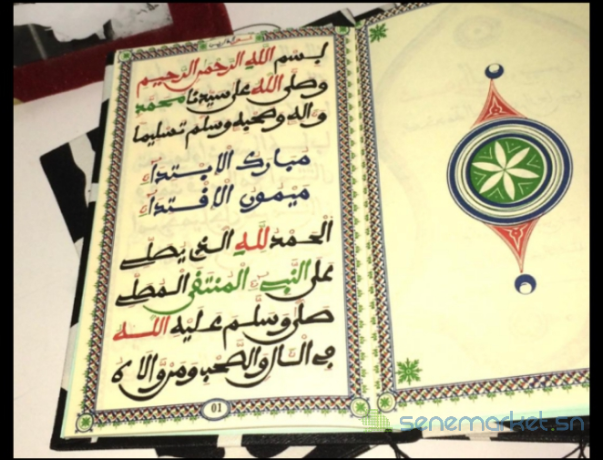 بسم الله الرحمن الرحيم
وصلى الله على سيدنا محمد
وءاله وصحبه وسلم تسليما
مبارك الابتداء
ميمون الافتداء
الحمد لله الذي يصلي
على النبيء المنتفى المصلي
صلى وسلم عليه الله
في الئال والصحب ومن والاه
01
senemarket.sn